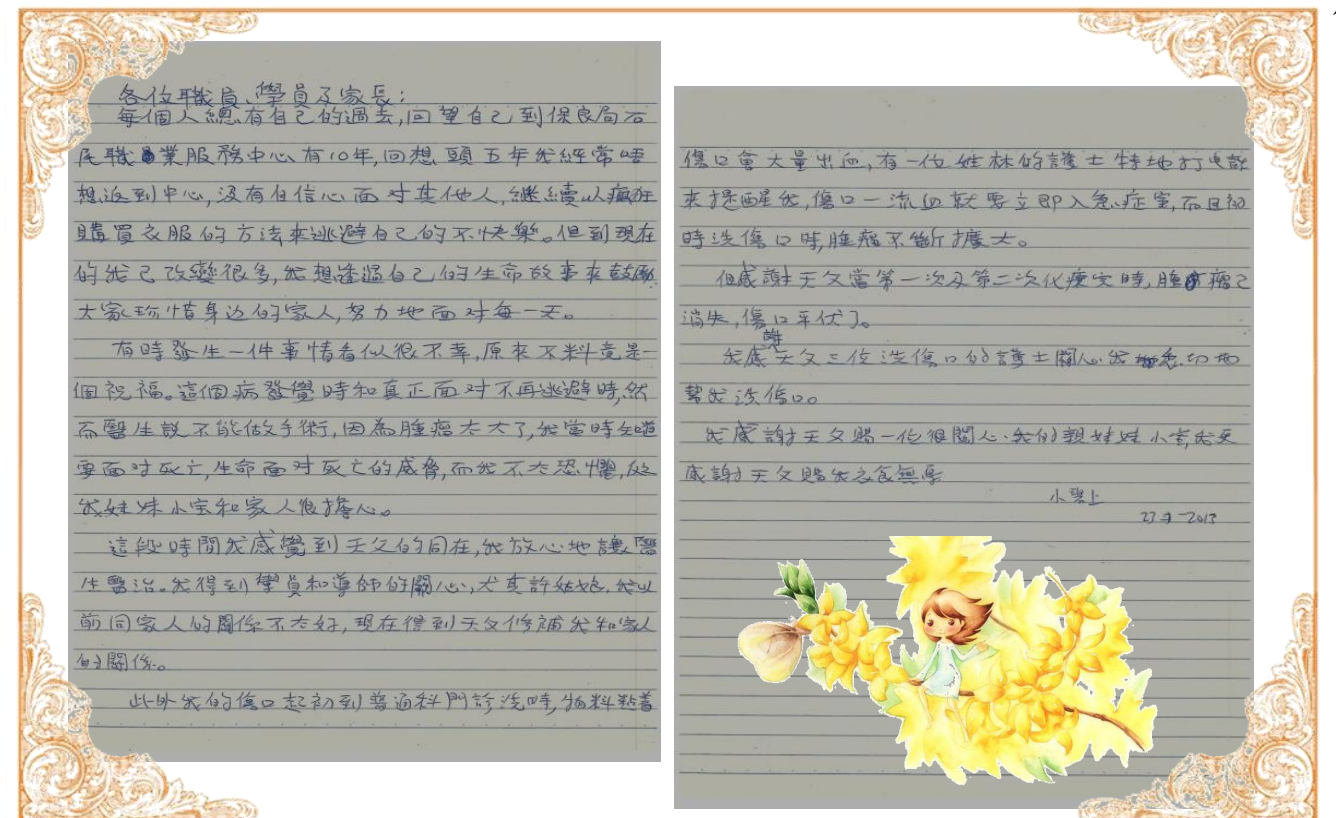 各位職員、學員及家長:
每個人總有自己的過去,回望自己到保良局石
民職業服務中心有10年,回想頭五年我經常唔
想返到中心,沒有自信心面对其他人,繼續以瘋狂
購買衣服的方法來逃避自己的不快樂。但到現在
的我已改變很多,我想透過自己的生命故事來鼓勵
大家珍惜身边的家人,努力地面对每一天。
有時發生一件事情看似很不幸,原來不料竟是一
個祝福。這個病發覺時和真正面对不再逃避時,然
而醫生說不能做手術,因為腫瘤太大了,我當時知道
要面对死亡,生命面对死亡的威脅,而我不太恐懼,反
我妹妹小宝和家人很擔心。
這段時間我感覺到天父的同在,我放心地讓醫
生醫治。我得到學員和導師的關心,尤其許姑娘。我以
前同家人的關係不太好,現在得到天父修補我和家人
的關係。
此外我的傷口起初到普通科門診洗時,物料黏着
傷口會大量出血,有一位姓林的護士特地打電話
來提醒我,傷口一流血就要立即入急症室,而且初
時洗傷口時,腫瘤不斷擴大。
但感謝天父當第一次及第二次化療完時,腫瘤已
消失,傷口平伏了。
我感謝天父三位洗傷口的護士關心我 切地
幫我洗傷口。
我感謝天父賜一位很關心我的親妹妹小宝,我更
感謝天父賜我衣食無
小 上
2013